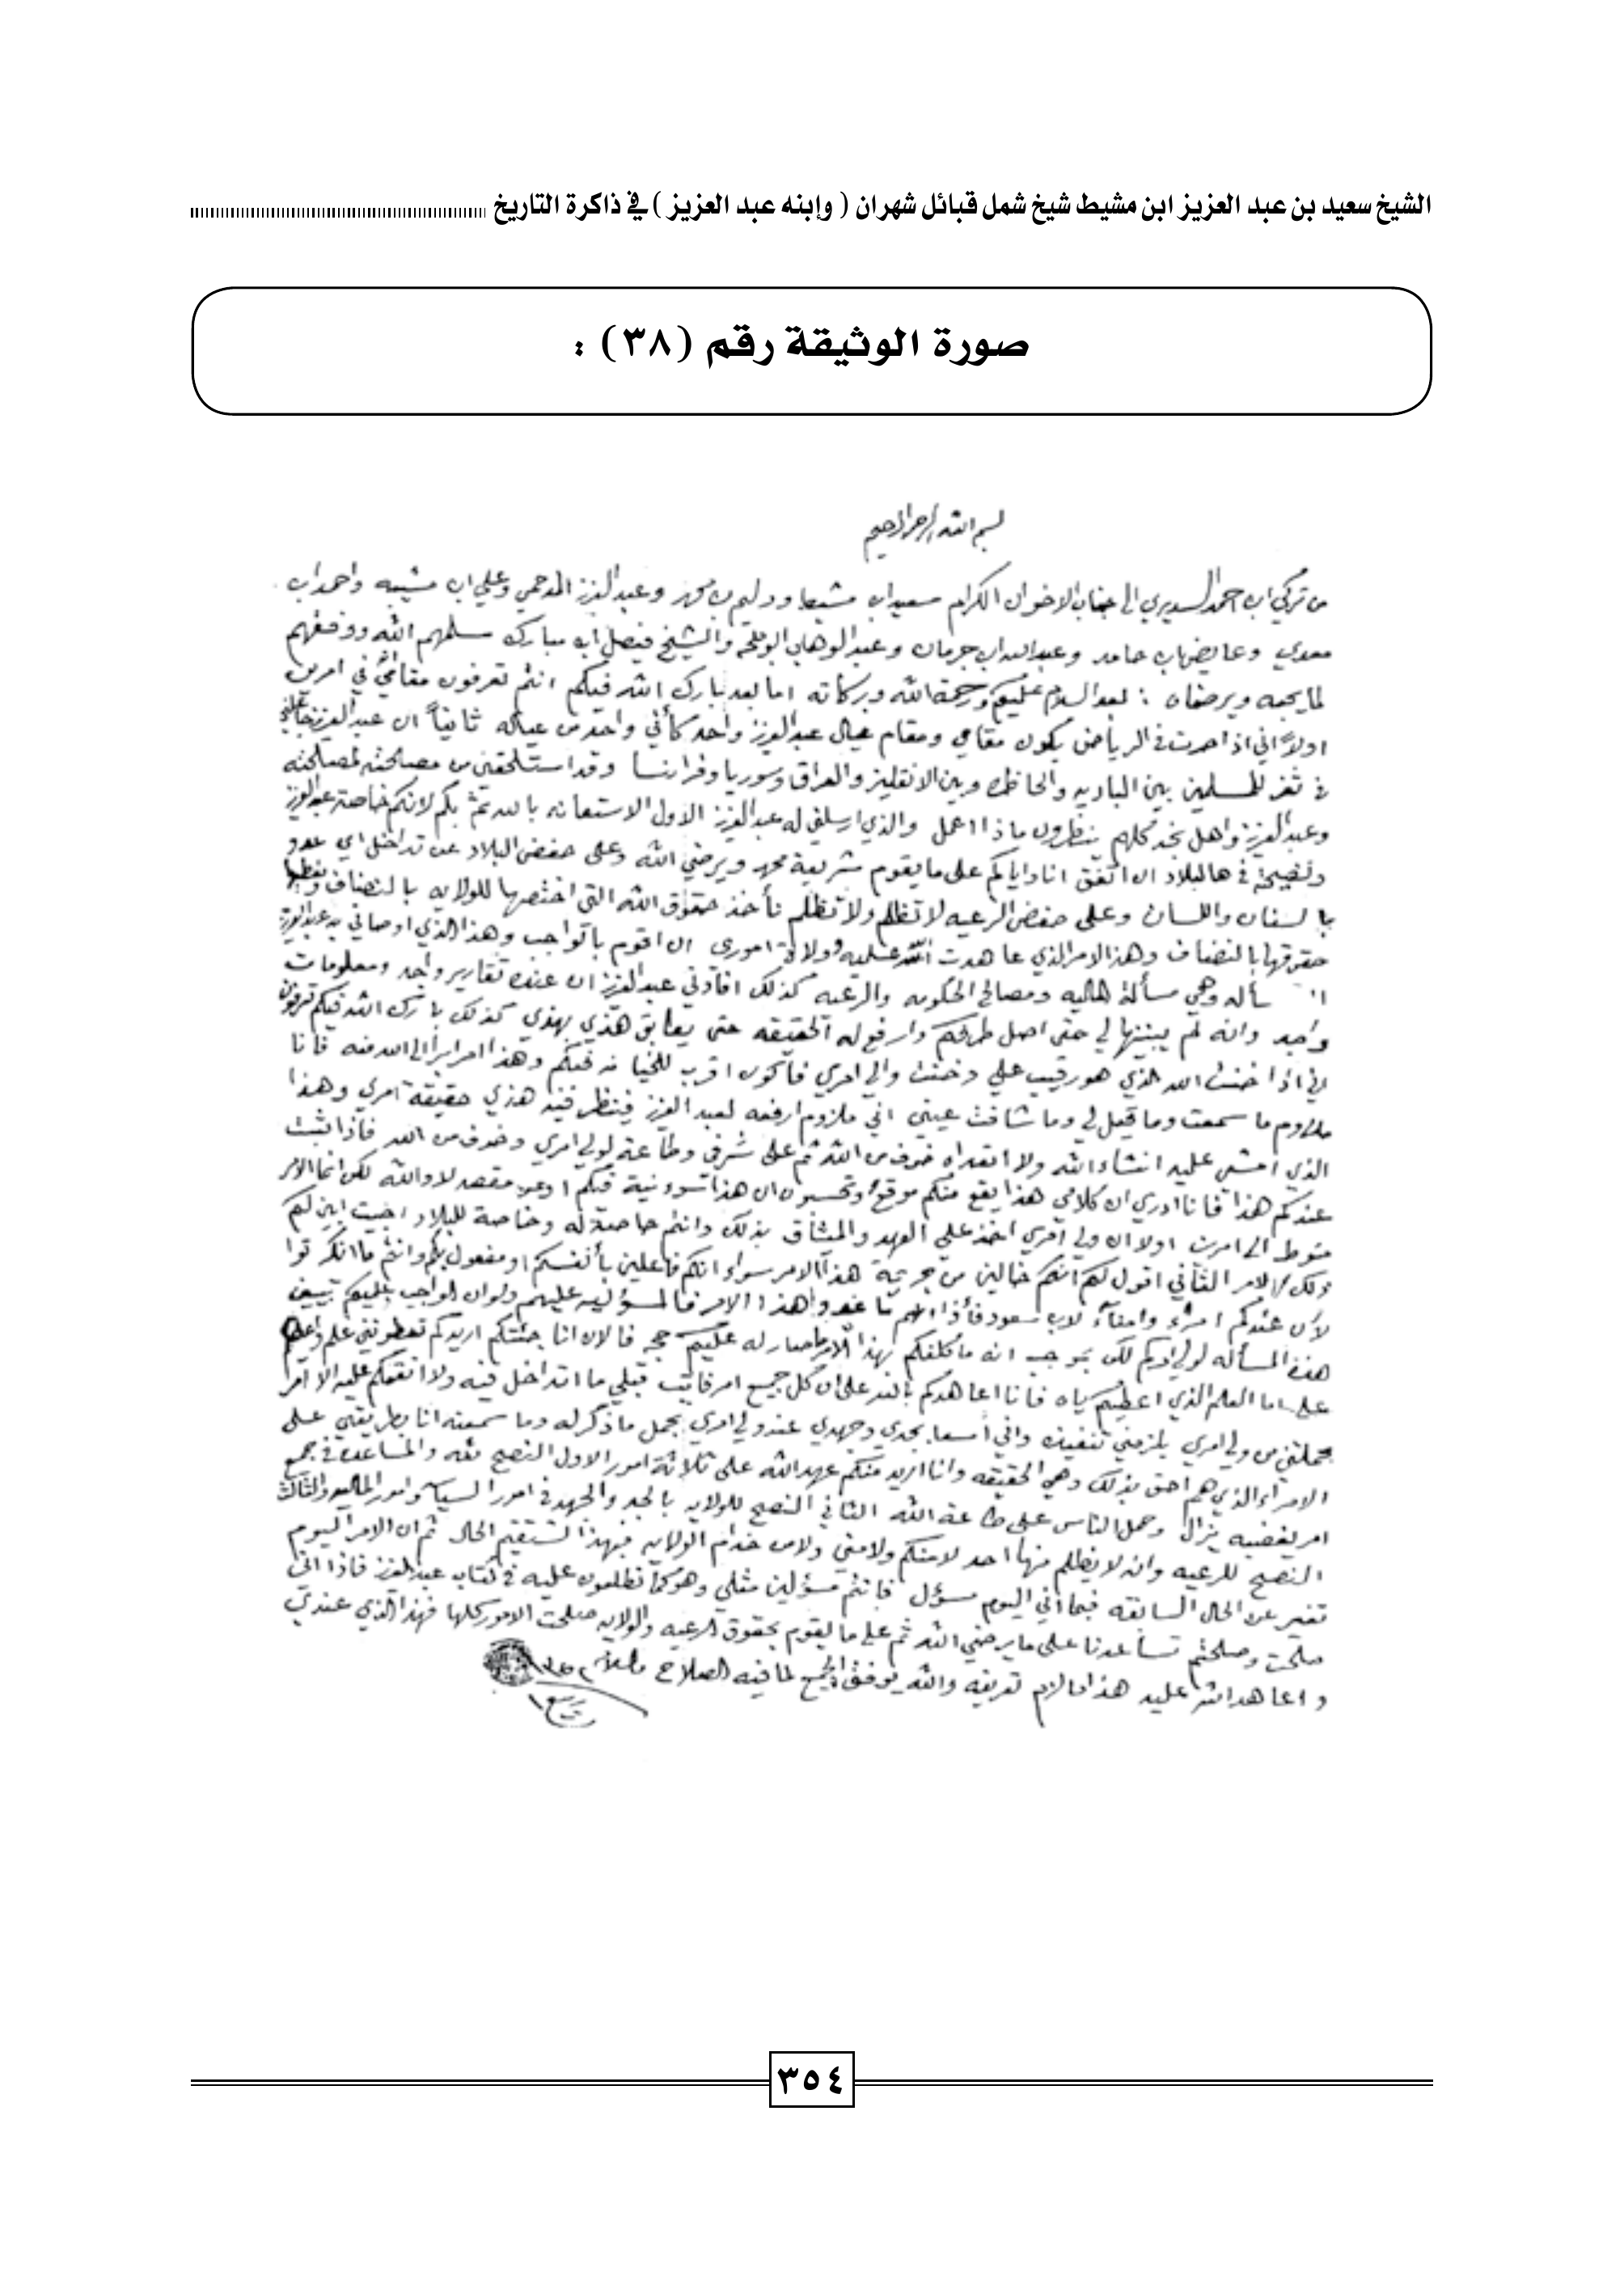 الشيخ سعيد بن عبد العزيز ابن مشيط شيخ شمل قبائل شهران ( وإبنه عبد العزيز ) في ذاكرة التاريخ
صورة الوثيقة رقم (٣٨) :
بسم الله الرحمن الرحيم
من تركي ابن احمد السديري الى جناب الاخوان الكرام سعيد ابن مشيط ودليم بن محمد وعبدالعزيز المدحمي وعلي ابن مشيبه واحمد ابن
معدي وعايض ابن حامد وعبدالله ابن جرمان وعبدالوهاب ابوملحه والشيخ فيصل ابن مبارك سلمهم الله ووفقهم
لما يحبه ويرضاه : بعد السلام عليكم ورحمة الله وبركاته اما بعد بارك الله فيكم انتم تعرفون مقامي في امرين
اولاً اني اذا صرت في الرياض يكون مقامي ومقام عيال عبدالعزيز واحد كأني واحد من عياله ثانياً ان عبدالعزيز
في ثغر للمسلمين بين الباديه والحاظره وبين الانقليز والعراق وسوريا وفرانسا وقد استلحقني من مصالحته لمصلحته
وعبدالعزيز واهل نجد كلهم ينظرون ماذا اعمل والذي ارسلني له عبدالعزيز الاول الاستعانه بالله ثم بكم لانكم خاصة عبدالعزيز
ونصيحة في هالبلاد ان اتفق انا واياكم على ما يقوم شريعة محمد ويرضي الله وعلى حفض البلاد عن تداخل اي عدو
بالسنان واللسان وعلى حفض الرعيه لا تظلم ولا تظلم نأخذ حقوق الله التي اختصها للولايه بالنضاف
حقوقها بالنضاف وهذا الامر الذي عاهدت الله عليه وولاة اموري ان اقوم بالواجب وهذا الذي اوصاني به عبدالعزيز
سأله وهي مسألة الماليه ومصالح الحكومه والرعيه كذلك افادني عبدالعزيز ان عنده تقارير واجد ومعلومات
واجد وانه لم يبينها لي حتى اصل طرفكم وارفع له الحقيقه حتى يطابق هذي بهذي كذلك بارك الله فيكم تعرفون
اني اذا خنت الله الذي هو رقيب علي وخنت والي امري فأكون اقرب للخيانه فيكم وهذا امر ابرأ الى الله منه فانا
ملزوم ما سمعت وما قيل لي وما شافت عيني اني ملزوم ارفعه لعبدالعزيز فينظر فيه هذي حقيقة امري وهذا
الذي امشي عليه انشاء الله ولا اتعداه خوف من الله ثم على شرفي وطاعة لولي امري وخوف من الله فاذا ثبت
عندكم هذا فانا ادري ان كلامي هذا يقع منكم موقع وتحسبون ان هذا سوء نية فيكم او عن مقصد لا والله لكن انما الامر
منوط الى امرين اولا ان ولي امري اخذ علي العهد والميثاق بذلك وانتم خاصة له وخاصة للبلاد احببت ابين لكم
ذلك الامر الثاني اقول لكم انكم خالين من تجربة هذا الامر سواء انكم فاعلين بأنفسكم او مفعول بكم وانتم ما انكرتوا
لأن عندكم امراء وامناء لابن سعود فأذا انهم هذا الامر فالمسؤليه عليهم ولو ان الواجب عليكم تبيين
هذه المسأله لولي امركم لكن بموجب انه ما كلفكم بهذا الامر ما صار له عليكم حجه فالان انا جئتكم اريدكم تعطونني علم واعطيكم
علم اما العلم الذي اعطيكم ياه فانا اعاهدكم بالله على ان كل جميع امر فايت قبلي ما اتداخل فيه ولا انقمكم عليه الا امر
بحملتني من ولي امري يلزمني تنفيذه واني اسعا بجدي وجهدي عند ولي امري بحمل ما ذكر له وما سمعته انا بطريقتي على
الامراء الذي هم احق بذلك وهي الحقيقه وانا اريد منكم عهد الله على ثلاثة امور الاول النصح لله والمساعده في جميع
امر يغضبه يزال وحمل الناس على طاعة الله الثاني النصح للولايه بالجد والجهد في امور السياسه وامور الماليه والثالث
النصح للرعيه وان لا يظلم منها احد لا منكم ولا مني ولا من خدام الولايه فبهذا تستقيم الحال ثم ان الامر اليوم
تغير عن الحال السابقه فيما اني اليوم مسؤل فانتم مسؤلين مثلي وهو كما تطلعون عليه في كتاب عبدالعزيز فاذا انني
صلحت وصلحتم تساعدنا على ما يرضي الله ثم على ما يقوم بحقوق الرعيه والولايه صلحت الامور كلها فهذا الذي عندي
واعاهد الله عليه هذا ما لزم تعريفه والله يوفق الجميع لما فيه الصلاح والسلام ١٣٥٢
ربيع ١
٣٥٤